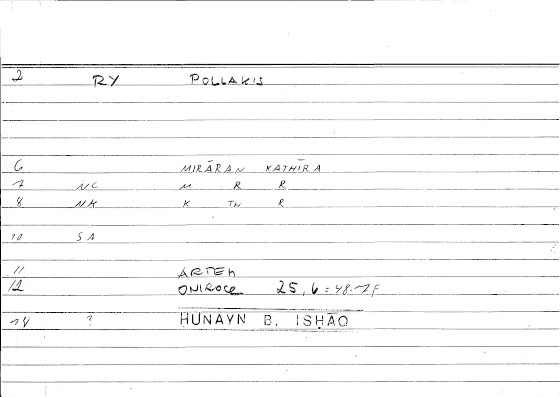 2 RY POLLAKIS
6 MIRĀRAN KATHĪRA
7 NC M R R
8 NK K TH R
10 SA
11 ARTEM
12 ONIROCR 25,6 = 48.7F
14 ? HUNAYN B. ISḤĀQ